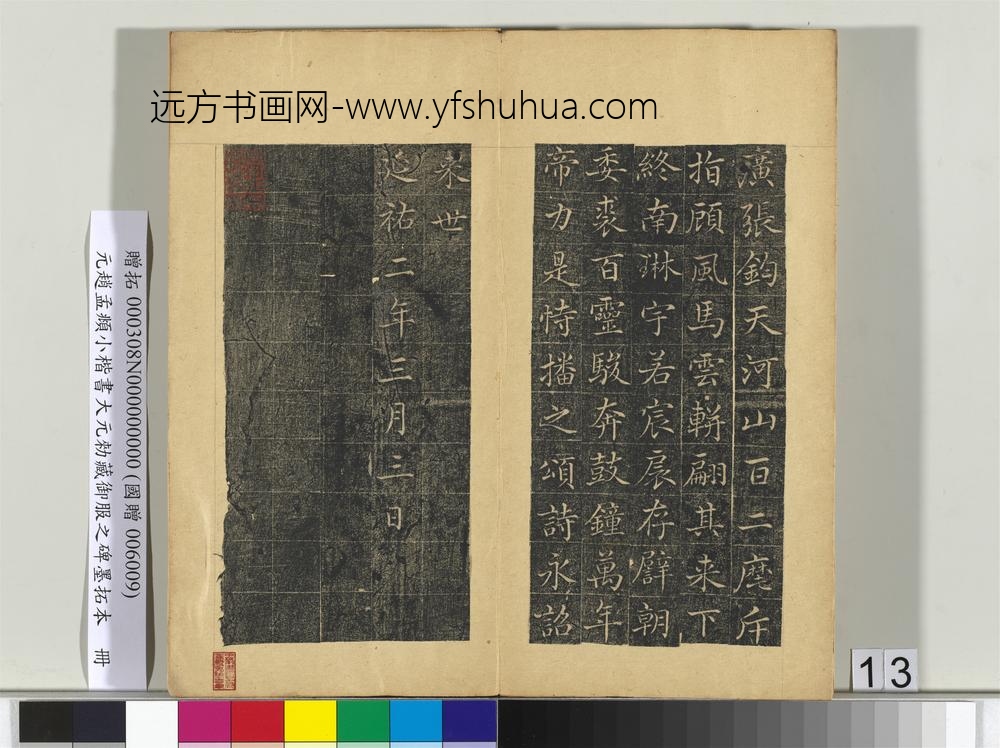 远方书画网-www.yfshuhua.com
廣張鈞天河山百二麾斥
指顧風馬雲軿翩其来下
終南琳宇若宸扆存辟朝
委裘百靈駿奔鼓鐘萬年
帝力是恃播之頌詩永詔
来世
延祐二年三月三日
贈拓 000308N000000000 (國贈 006009)
元趙孟頫小楷書大元勑藏御服之碑墨拓本 冊
13